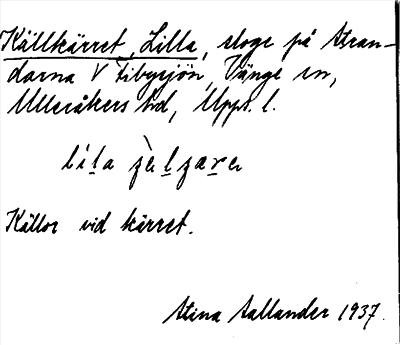 Källkärret, Lilla, sloge på Stran-
darna V Fibysjön, Vänge sn,
Ulleråkers hd, Uppl. l.
Källor vid kärret.
Stina Sallander 1937.